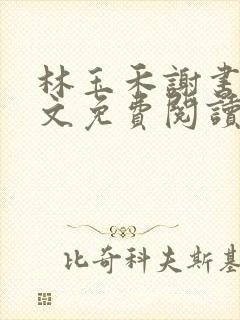 林玉禾謝書
文免費閱讀
比奇科夫斯基